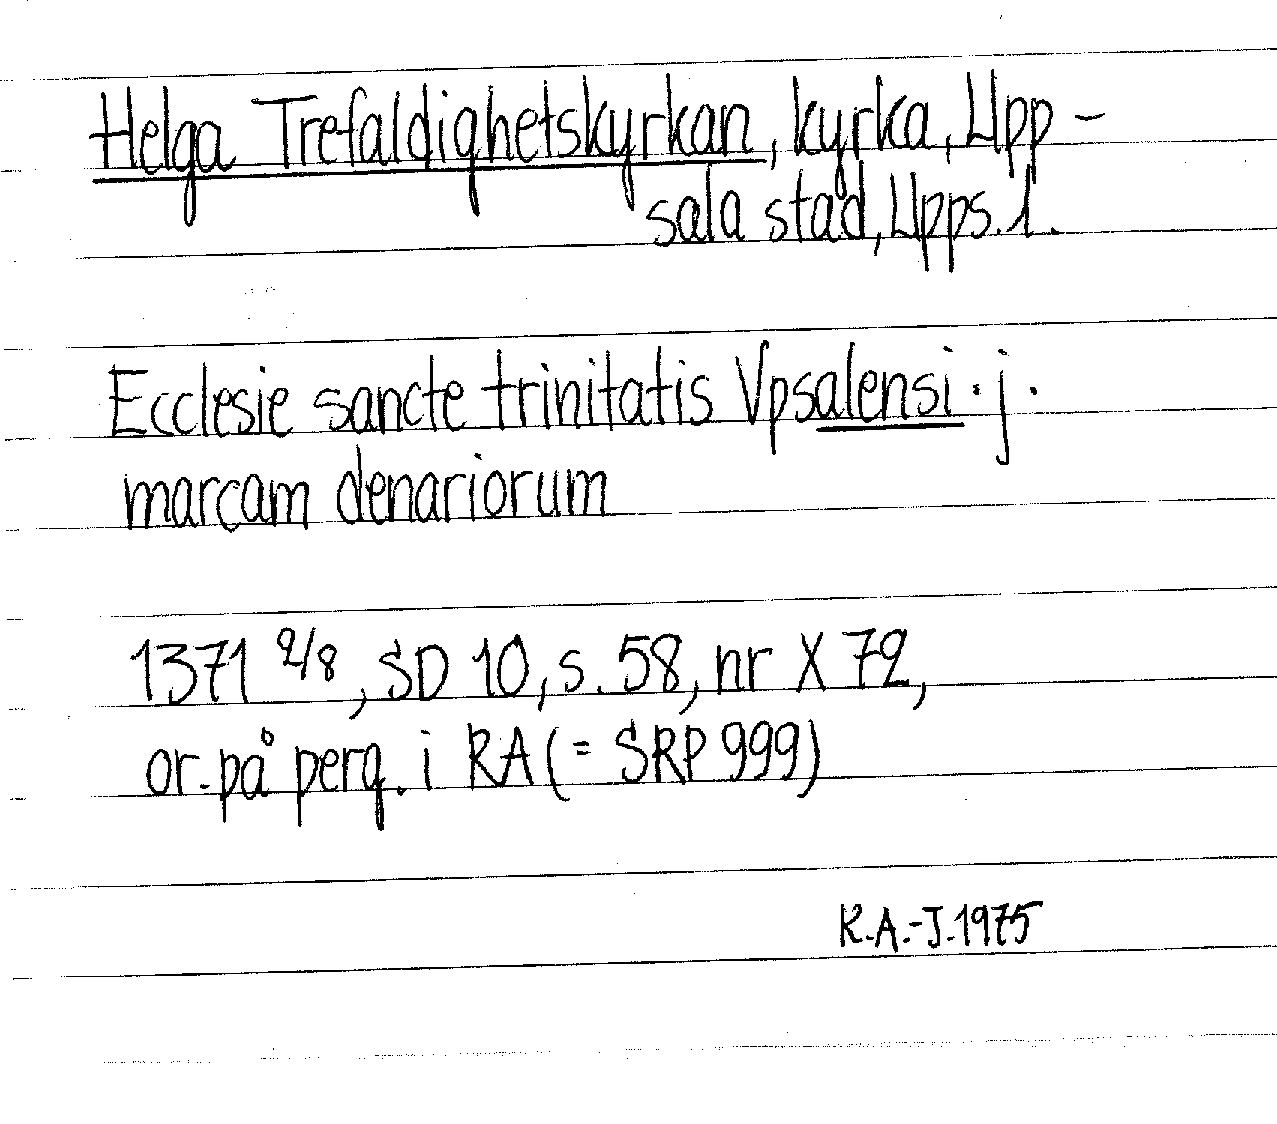 Helga Trefaldighetskyrkan, kyrka, Upp-
sala stad, Upps. l.
Ecclesie sancte trinitatis Vpsalensi · j ·
marcam denariorum
1371 2/8, SD 10, s. 58, nr X 72,
or. på perg. i RA (= SRP 999)
K.A.-J. 1975